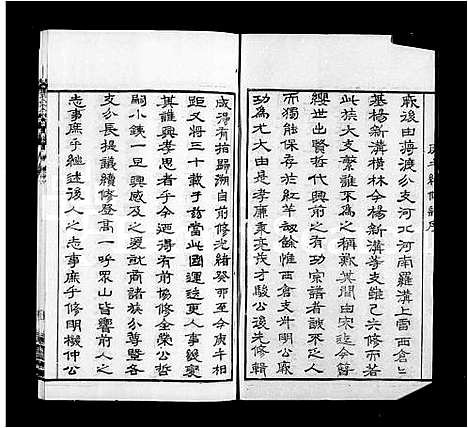 庚午續修譜序
厥後由蔣渡分支河北河南羅溝上雷西倉
基楊新溝橫林分楊新溝等支雖已六修而若
此族大支繁誰不為之稱歎其間由宋迄今簪
纓世出賢哲代興前之有功宗譜者誠不乏人
而獨能保存於紅羊劫餘惟西倉支明公厥
功為尤大由是孝廉秉亮茂才駿公後先修輯
成得有指歸溯自前修光緒癸卯至今庚午相
距又將三十載于茲當此國運迭更人事變
其誰興孝思者乎今迺得有前場修全榮公哲
嗣小鋑一旦興感及之爰就商諸族分尊暨各
支分長提議續修登高一呼眾山皆響前人之
志事庶乎繼述後人之志事庶乎修明機仲公